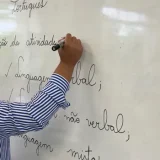 Português
ção de atividade
/ linguagem verbal;
não verbal;
linguagem mista